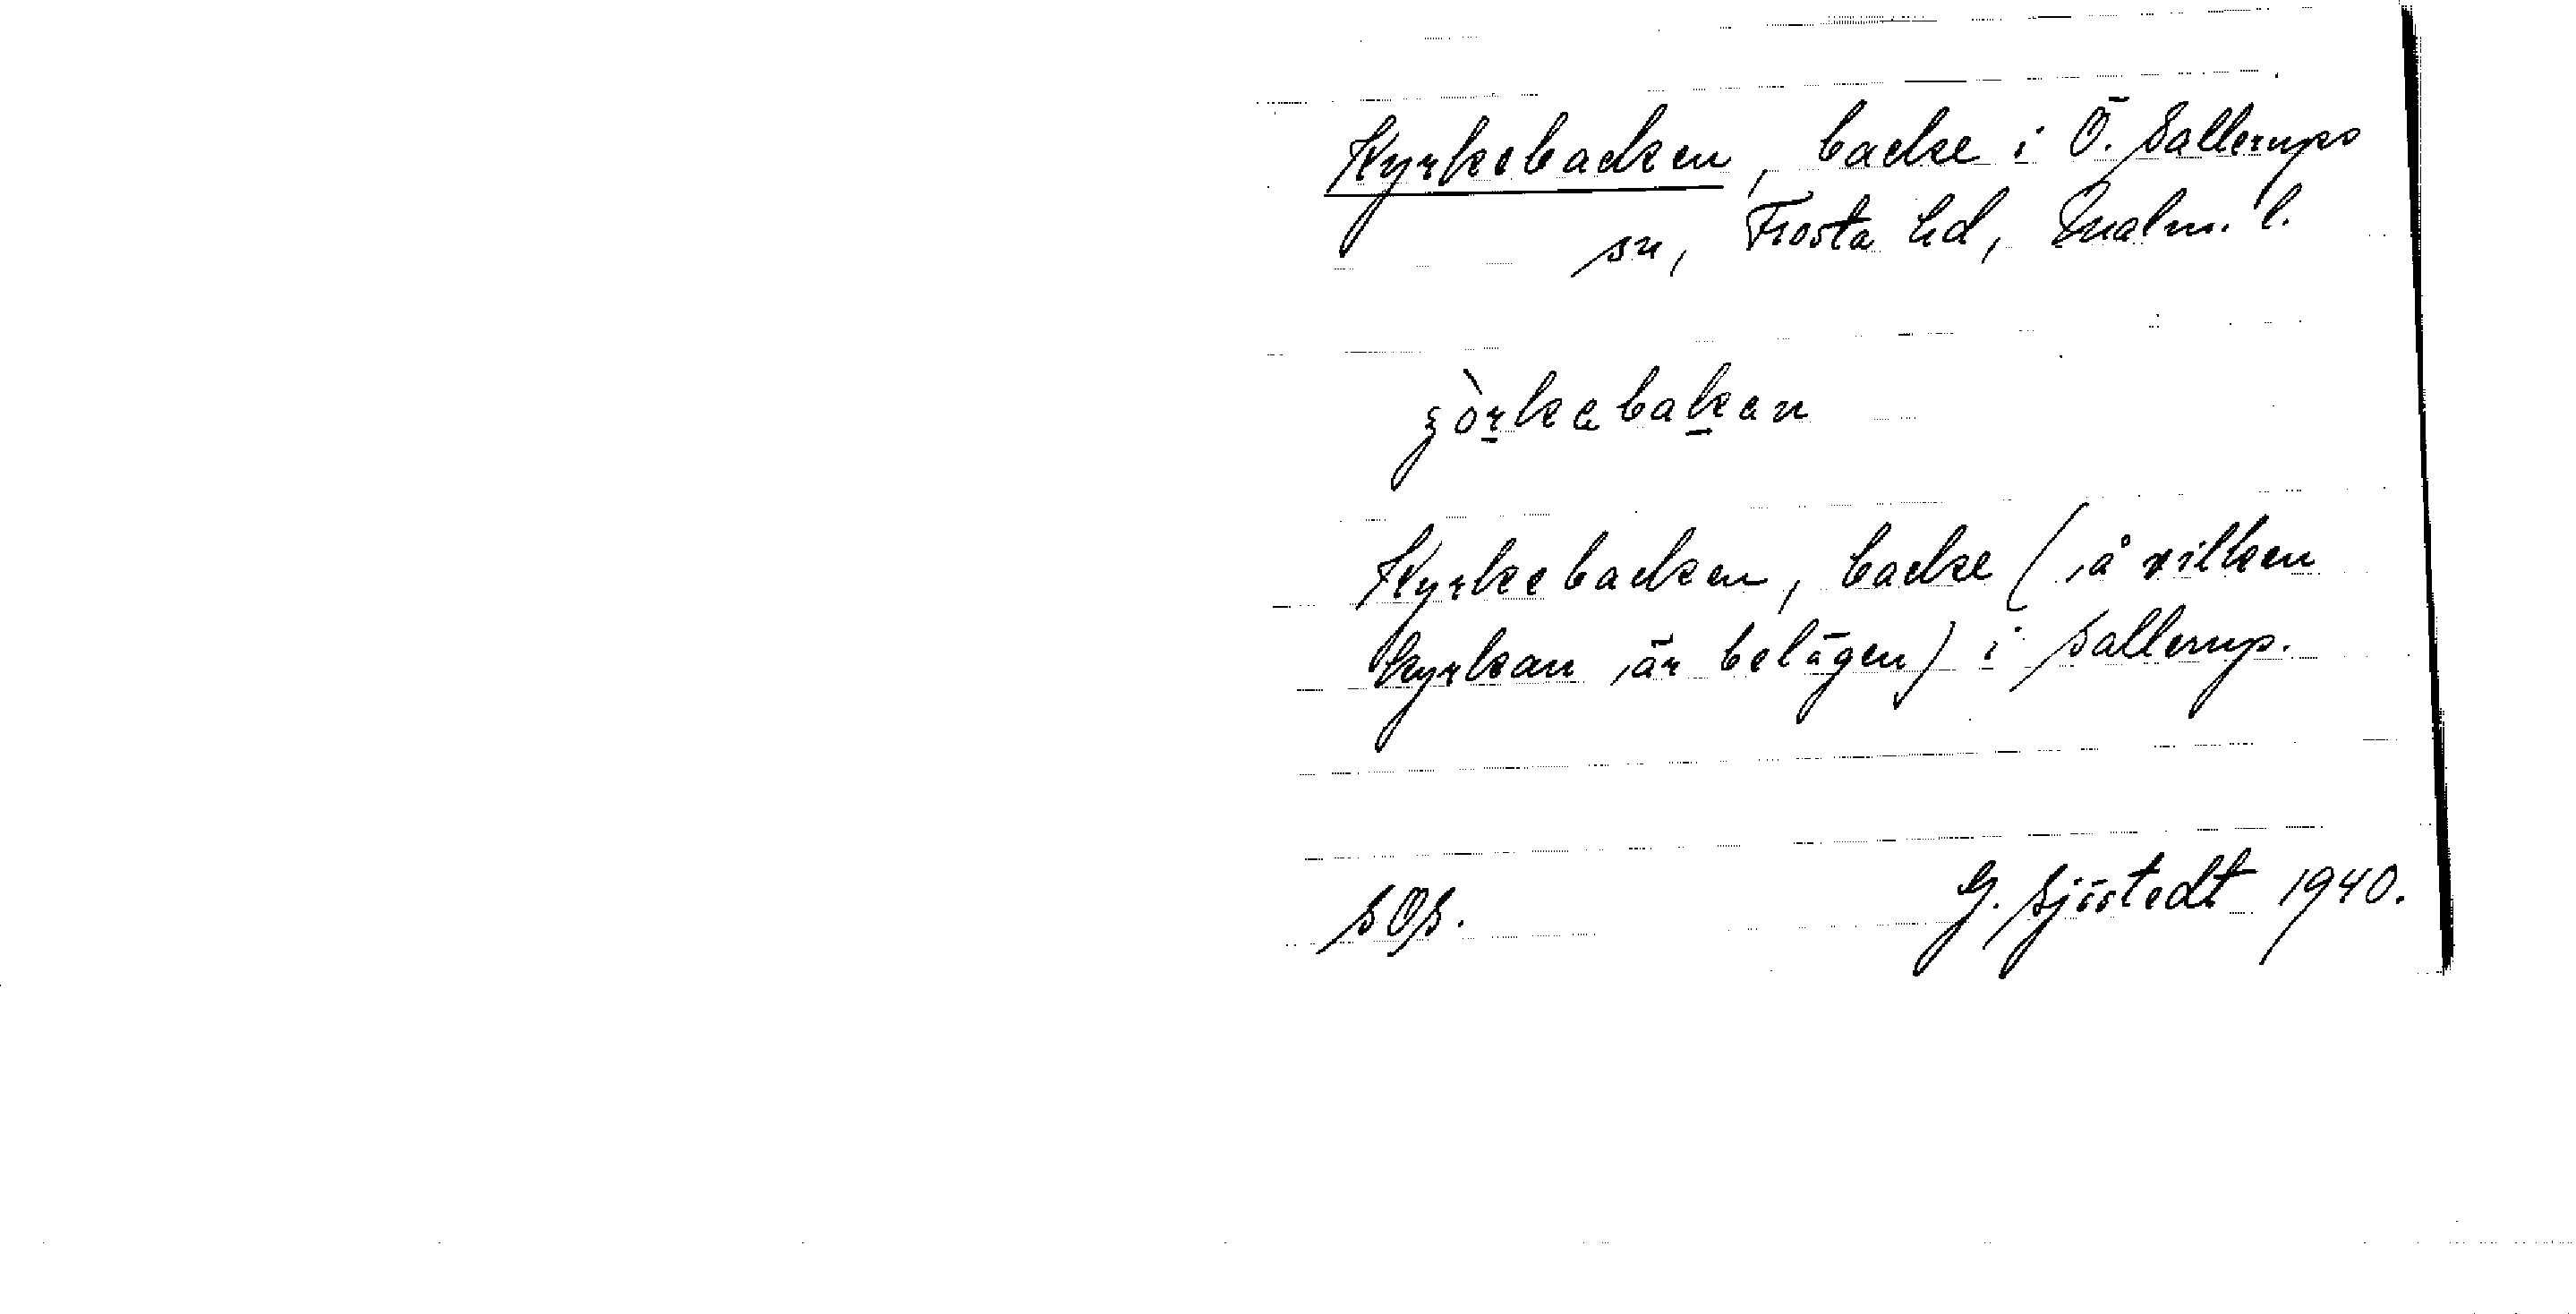 Kyrkebacken, backe i Ö. Sallerups
sn, Frosta hd, Malm. l.
Kyrkebacken, backe (å vilken
kyrkan är belägen) i Sallerup.
SOS. G. Sjöstedt 1940.